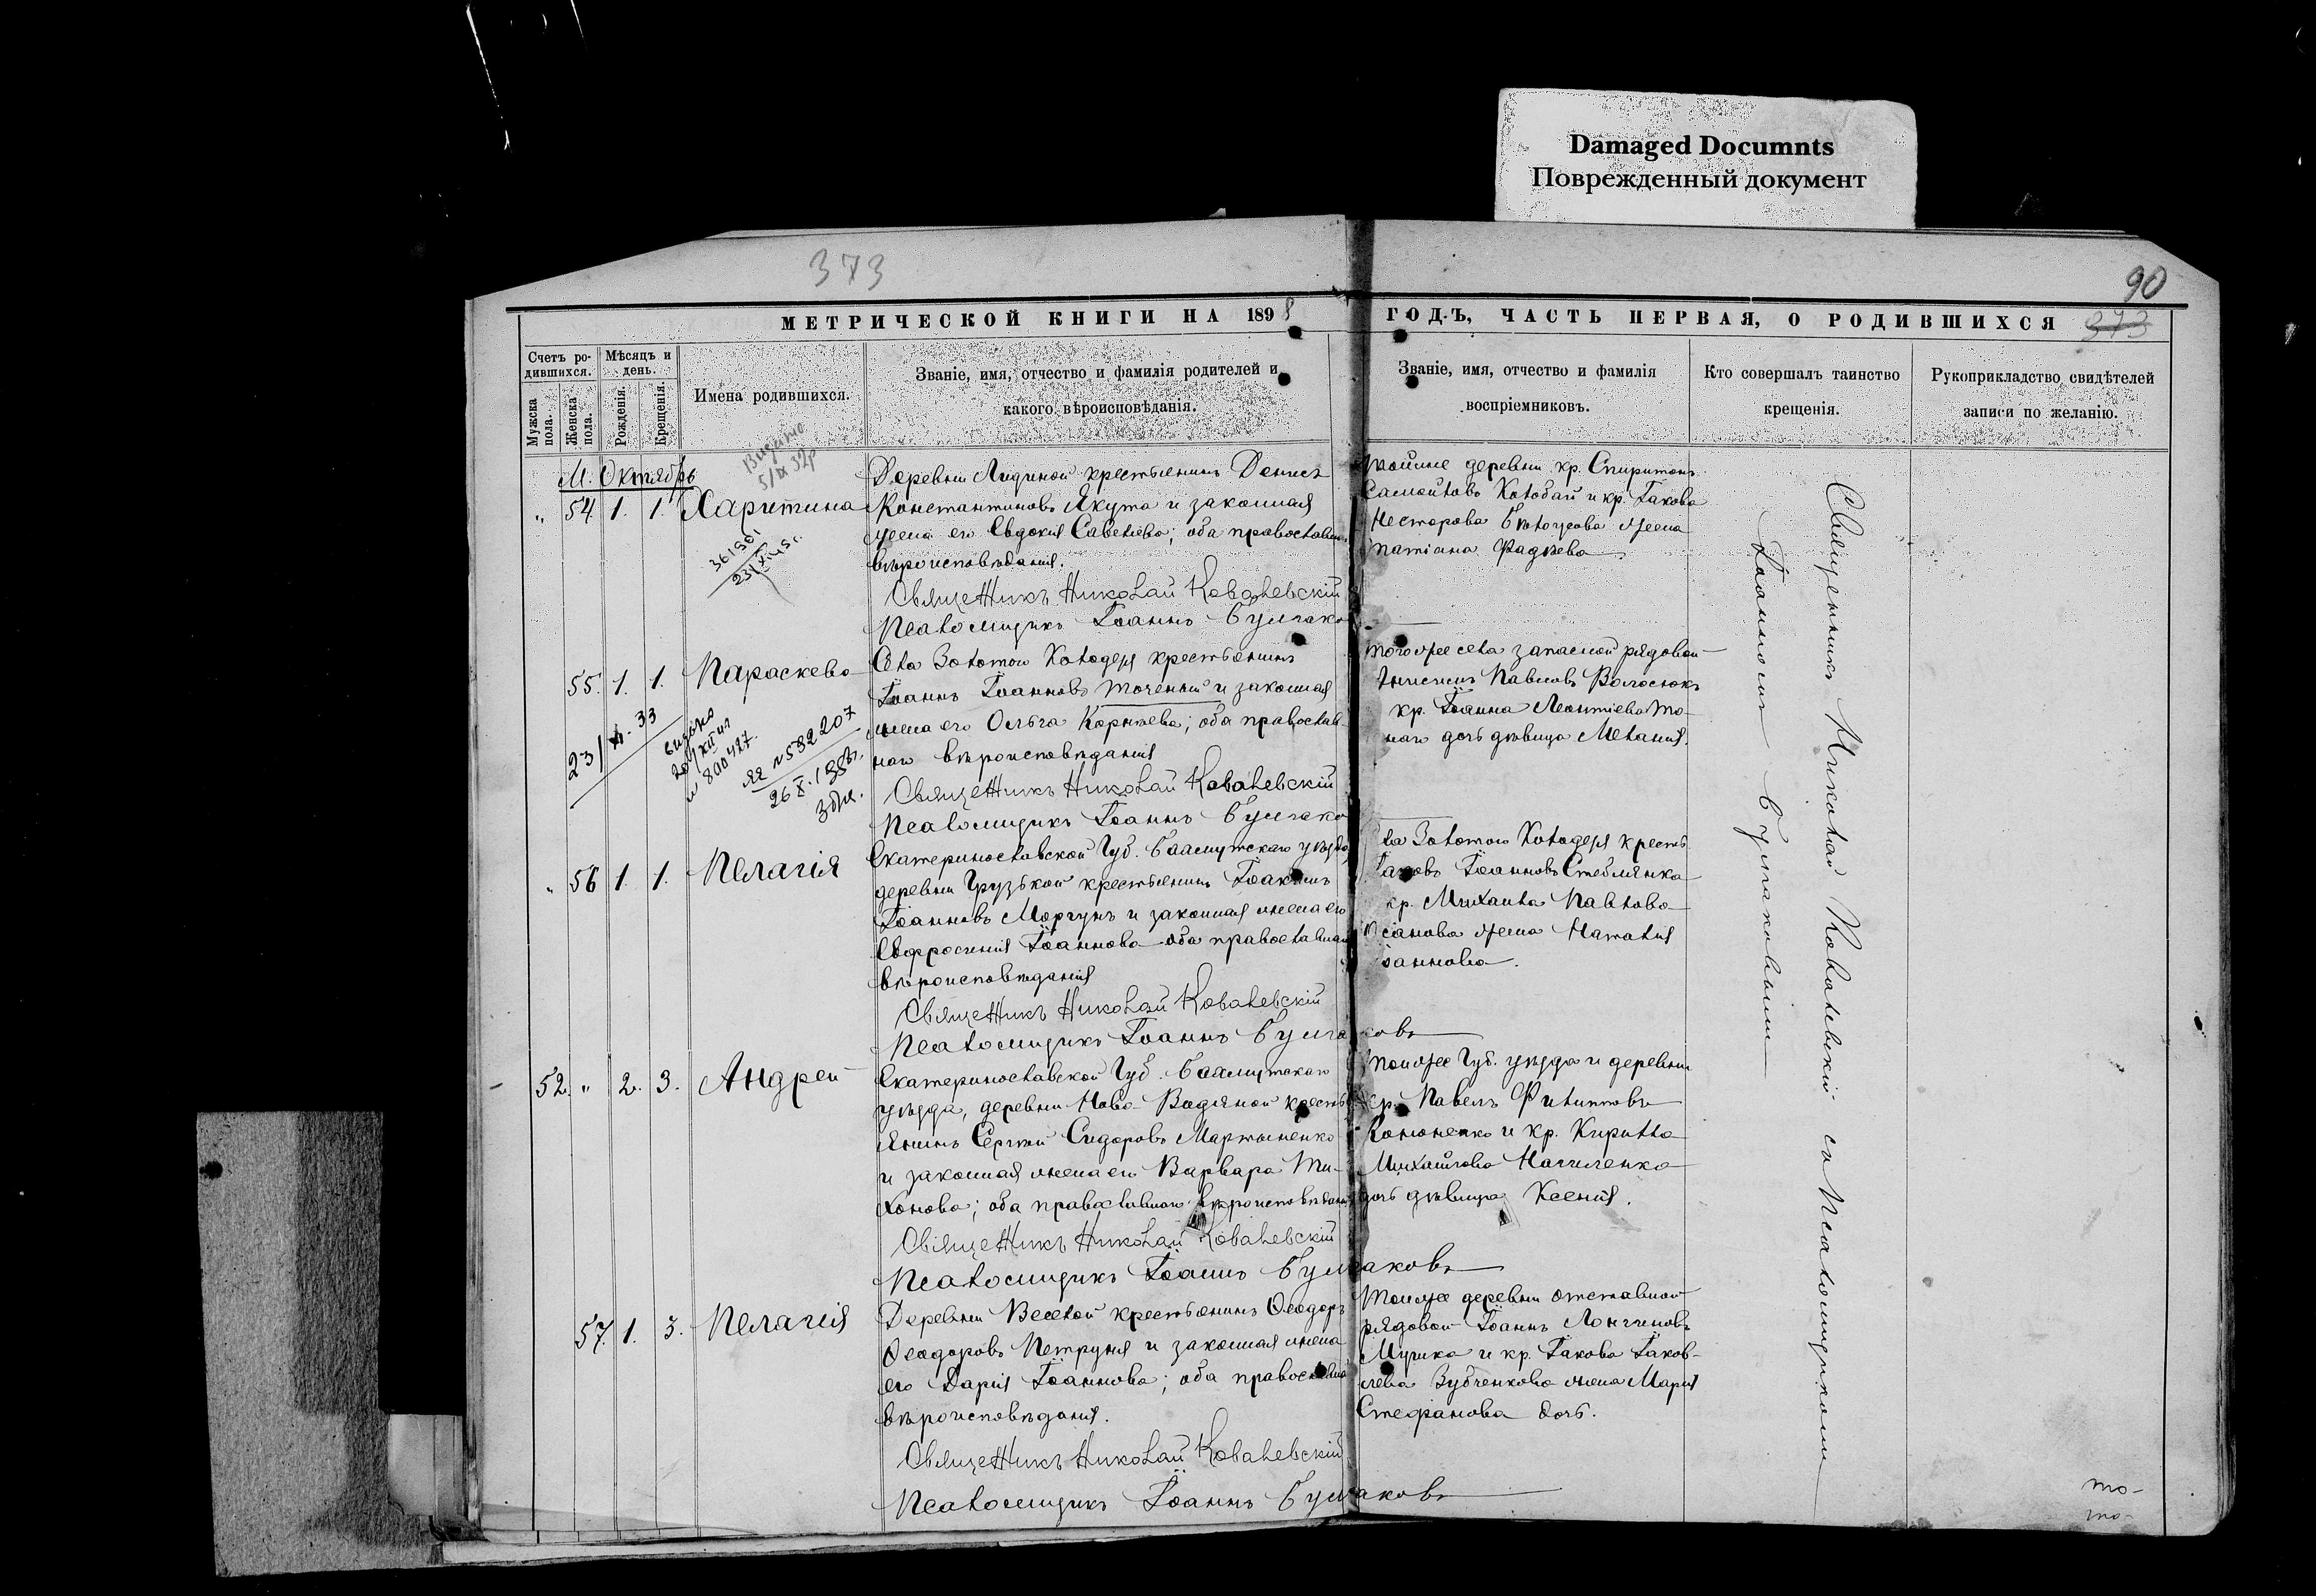 Damaged Documnts
Поврежденный документ
373
90
МЕТРИЧЕСКОЙ КНИГИ НА 1898
ГОДЪ, ЧАСТЬ ПЕРВАЯ, О РОДИВШИХСЯ
373
Счетъ ро-
дившихся.
Мѣсяцъ и
день.
Мужска
пола.
Женска
пола.
Рожденія.
Крещенія.
Имена родившихся.
Званіе, имя, отчество и фамилія родителей и
какого вѣроисповѣданія.
Званіе, имя, отчество и фамилія
воспріемниковъ.
Кто совершалъ таинство
крещенія.
Рукоприкладство свидѣтелей
записи по желанію.
М. Октябрь
Видано
5/IX 32р
" 54 1. 1. Харитина
361561
Деревни Лидиной крестьянинъ Денисъ
Константиновъ Якута и законная
жена его Евдокія Савельева; оба православн.
вѣроисповѣданія.
Священникъ Николай Ковалевскій
Псаломщикъ Іоаннъ Булгако
тойже деревни кр. Спиридонъ
Самойловъ Колобай и кр. Іакова
Несторова Бѣлоусова жена
Татіана Фадѣева
55. 1. 1. Параскева
23/ 33
видано
№ 800427.
№ 582207
26 X. 1935г.
Села Золотого Колодезя крестьянинъ
Іоаннъ Іоанновъ Точеный и законная
жена его Ольга Корнѣева; оба православ-
наго вѣроисповѣданія
Священникъ Николай Ковалевскій
Псаломщикъ Іоаннъ Булгако
тогоже села запасной рядовой
Павловъ Волосюкъ
кр. Іоанна Леонтіева То-
наго дочь дѣвица Меланія.
" 56 1. 1. Пелагія
Екатеринославской Губ. Бахмутскаго уѣзда,
деревни Грузской крестьянинъ Іоакимъ
Іоанновъ Моргунъ и законная жена его
Евфросинія Іоаннова оба православнаго
вѣроисповѣданія
Священникъ Николай Ковалевскій
Псаломщикъ Іоаннъ Булгаковъ
ла Золотого Колодезя кресть.
Іаковъ Іоанновъ Стеблянка
кр. Михаила Павлова
жена Наталія
Іоаннова.
52. " 2. 3. Андрей
Екатеринославской Губ. Бахмутскаго
уѣзда, деревни Ново-Водяной кресть-
янинъ Сергій Сидоровъ Мартыненко
и законная жена его Варвара Ти-
хонова; оба православнаго вѣроисповѣдан.
Священникъ Николай Ковалевскій
Псаломщикъ Іоаннъ Булгаковъ
тойже Губ. уѣзда и деревни
кр. Павелъ Филипповъ
Кононенко и кр. Кирилла
Михайлова
дочь дѣвица Ксенія.
57. 1. 3. Пелагія
Деревни Веселой крестьянинъ Ѳеодоръ
Ѳеодоровъ Петруня и законная жена
его Дарія Іоаннова; оба православна
вѣроисповѣданія.
Священникъ Николай Ковалевскій
Псаломщикъ Іоаннъ Булгаковъ
тойже деревни отставной
рядовой Іоаннъ Лонгиновъ
Мушка и кр. Іакова Іаков-
лева Зубченкова жена Марія
Стефанова дочь.
Священникъ Николай Ковалевскій съ Псаломщикомъ
Іоанномъ Булгаковымъ
то-
то-